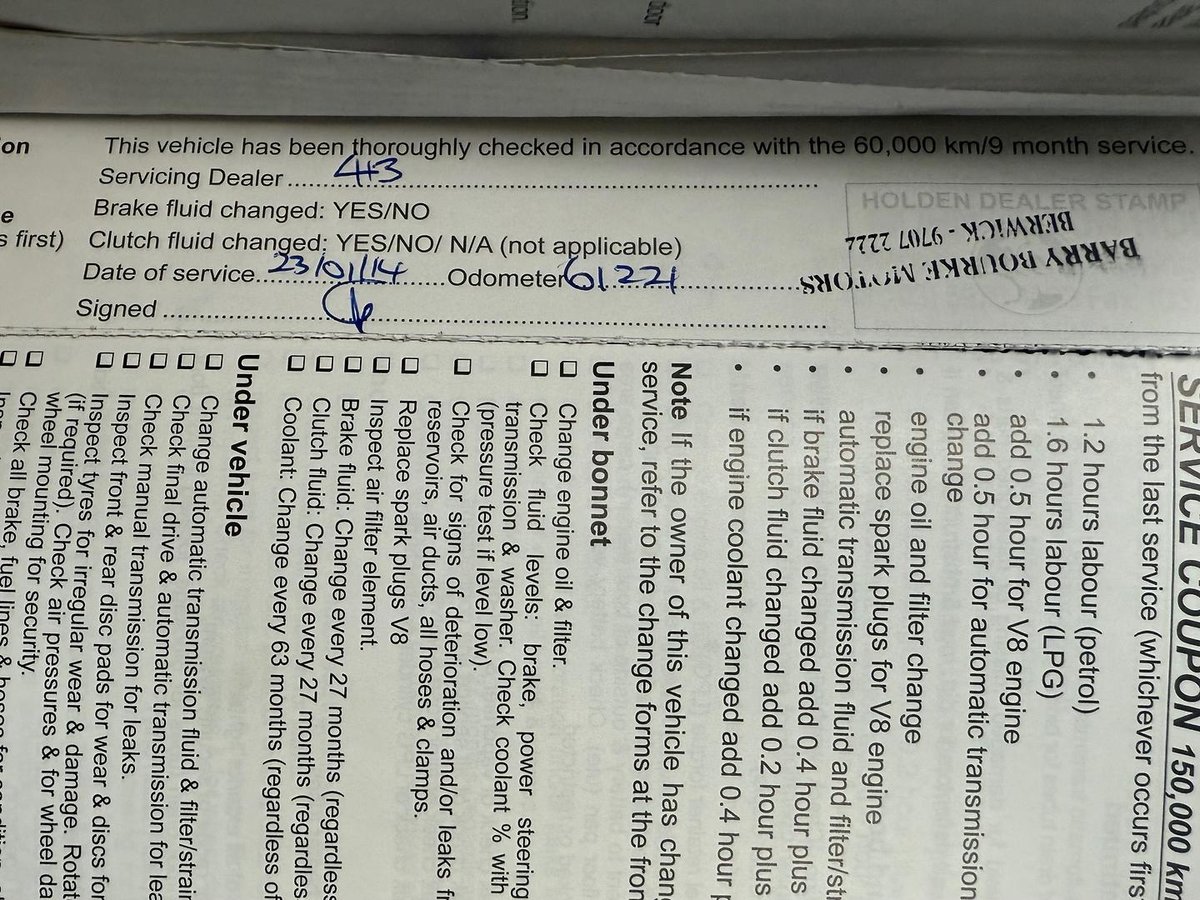 tion
door
on
This vehicle has been thoroughly checked in accordance with the 60,000 km/9 month service.
Servicing Dealer ........ 413 ........
e
Brake fluid changed: YES/NO
s first)
Clutch fluid changed: YES/NO/ N/A (not applicable)
Date of service...23/01/14......Odometer 61221
Signed ........
HOLDEN DEALER STAMP
BARRY BOURKE MOTORS
BERWICK - 9707 2222
SERVICE COUPON 150,000 km
from the last service (whichever occurs first
• 1.2 hours labour (petrol)
• 1.6 hours labour (LPG)
• add 0.5 hour for V8 engine
• add 0.5 hour for automatic transmission
change
engine oil and filter change
• replace spark plugs for V8 engine
• automatic transmission fluid and filter/str
• if brake fluid changed add 0.4 hour plus
• if clutch fluid changed add 0.2 hour plus
• if engine coolant changed add 0.4 hour p
Note If the owner of this vehicle has chan
service, refer to the change forms at the fron
Under bonnet
Change engine oil & filter.
Check fluid levels: brake, power steering
transmission & washer. Check coolant % with
(pressure test if level low).
Check for signs of deterioration and/or leaks fr
reservoirs, air ducts, all hoses & clamps.
Replace spark plugs V8
Inspect air filter element.
Brake fluid: Change every 27 months (regardless
Clutch fluid: Change every 27 months (regardles
Coolant: Change every 63 months (regardless of
Under vehicle
Change automatic transmission fluid & filter/strain
Check final drive & automatic transmission for lea
Check manual transmission for leaks.
Inspect front & rear disc pads for wear & discs for
Inspect tyres for irregular wear & damage. Rotat
(if required). Check air pressures & for wheel da
wheel mounting for security.
Check all brake, fuel lines & hoses for condition